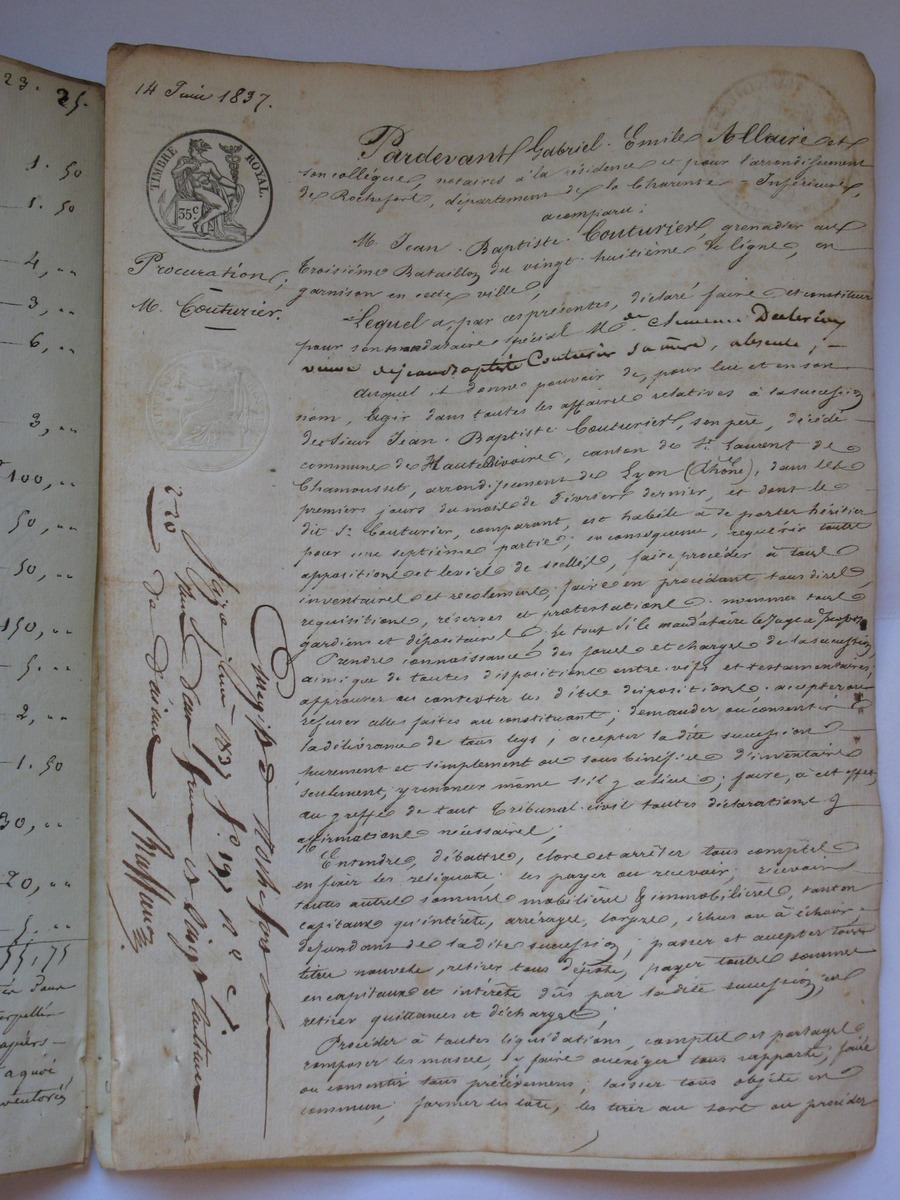 23. 25.
1. 50
1. 50
4, ..
3, ..
6, ..
3, ..
100, ..
50, ..
50, ..
150, ..
5. ..
2, ..
1. 50
30, ..
20, ..
5. ..
55, 75
14 Juin 1837.
TIMBRE ROYAL
35c
Procuration,
M. Couturier.
Pardevant Gabriel Emile Allaire et
son collègue, notaires à la résidence et pour l'arrondissement
de Rochefort, département de la Charente-Inférieure,
a comparu:
M. Jean-Baptiste Couturier, grenadier au
troisième Bataillon du vingt-huitième de ligne, en
garnison en cette ville,
Lequel a, par ces présentes, déclaré faire et constituer
pour son mandataire spécial Mde Clemence
veuve de jean baptiste Couturier sa mère, absente,
Auquel il donne pouvoir de, pour lui et en son
nom, Agir dans toutes les affaires relatives à la succession
du Sieur Jean-Baptiste Couturier, son père, décédé
commune de Hauterivoire, canton de St. Laurent de
Chamousset, arrondissement de Lyon (Rhône), dans les
premiers jours du mois de Février dernier, et dont le
dit Sr. Couturier, comparant, est habile à se porter héritier
pour une septième partie; en conséquence, requérir toutes
appositions et levées de scellés, faire procéder à tous
inventaires et recolements; faire en procédant, tous dires,
requisitions, réserves et protestations; nommer tous
gardiens et dépositaires, le tout si le mandataire le juge à propos
Prendre connaissance des forces et charges de la succession,
ainsi que de toutes dispositions entre vifs et testamentaires,
approuver ou contester les dites dispositions; accepter ou
refuser celles faites au constituant; demander ou consentir
la délivrance de tous legs; accepter la dite succession
purement et simplement ou sous bénéfice d'inventaire
seulement, y renoncer même s'il y a lieu; faire, à cet effet,
au greffe de tout Tribunal civil toutes déclarations &
affirmations nécessaires;
Entendre, débattre, clore et arrêter tous comptes
en fixer les reliquats; les payer ou recevoir; recevoir
toutes autres sommes mobilières & immobilières, tant en
capitaux qu'intérêts, arrérages, loyers, échus ou à échoir,
dépendant de la dite succession; passer et accepter tous
titres nouvels, retirer tous dépôts, payer toutes sommes
en capitaux et intérêts dûs par la dite succession; en
retirer quittances et décharges;
Procéder à toutes liquidations, comptes et partages
composer les masses, y faire ou exiger tous rapports, faire
ou consentir tous prélèvemens; laisser tous objets en
commun; former les lots, les tirer au sort ou procéder
Enregistré à Rochefort le
Seize juin 1837 fo. 197
deux francs et vingt centimes
de décime